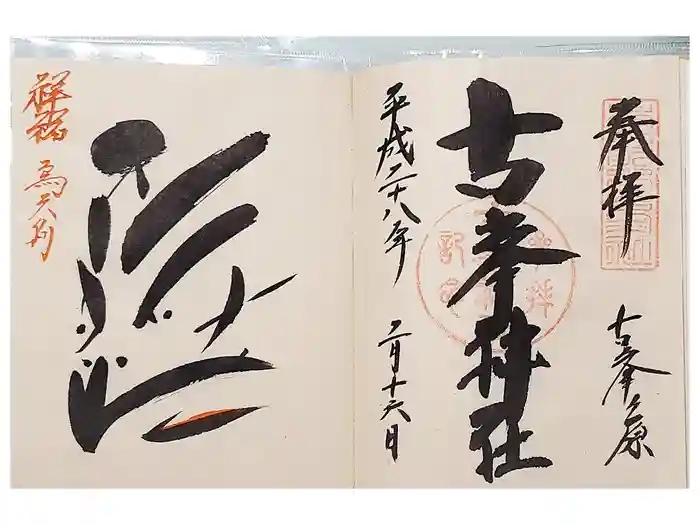 奉拝
古峯ヶ原
古峯神社
平成二十八年
二月十六日
祥
烏天狗